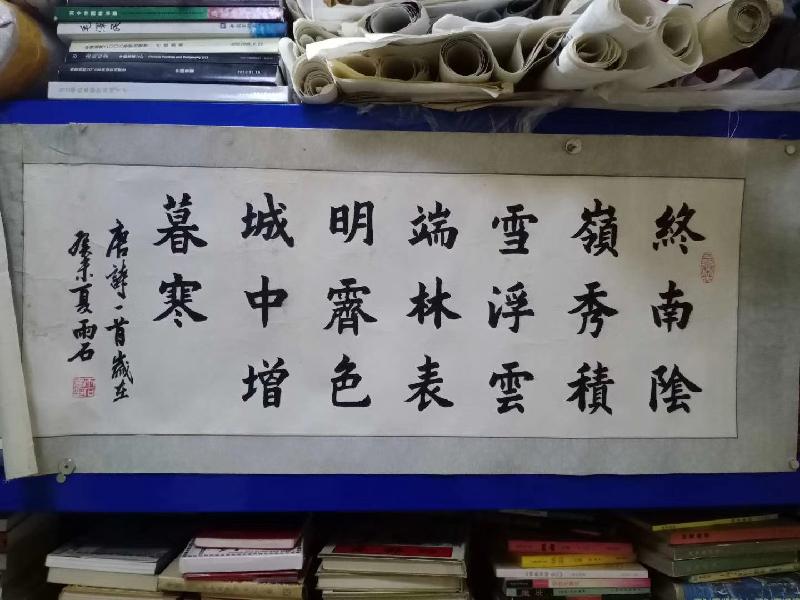 終南陰
嶺秀積
雪浮雲
端林表
明霽色
城中增
暮寒
唐詩一首歲在
癸未夏雨石